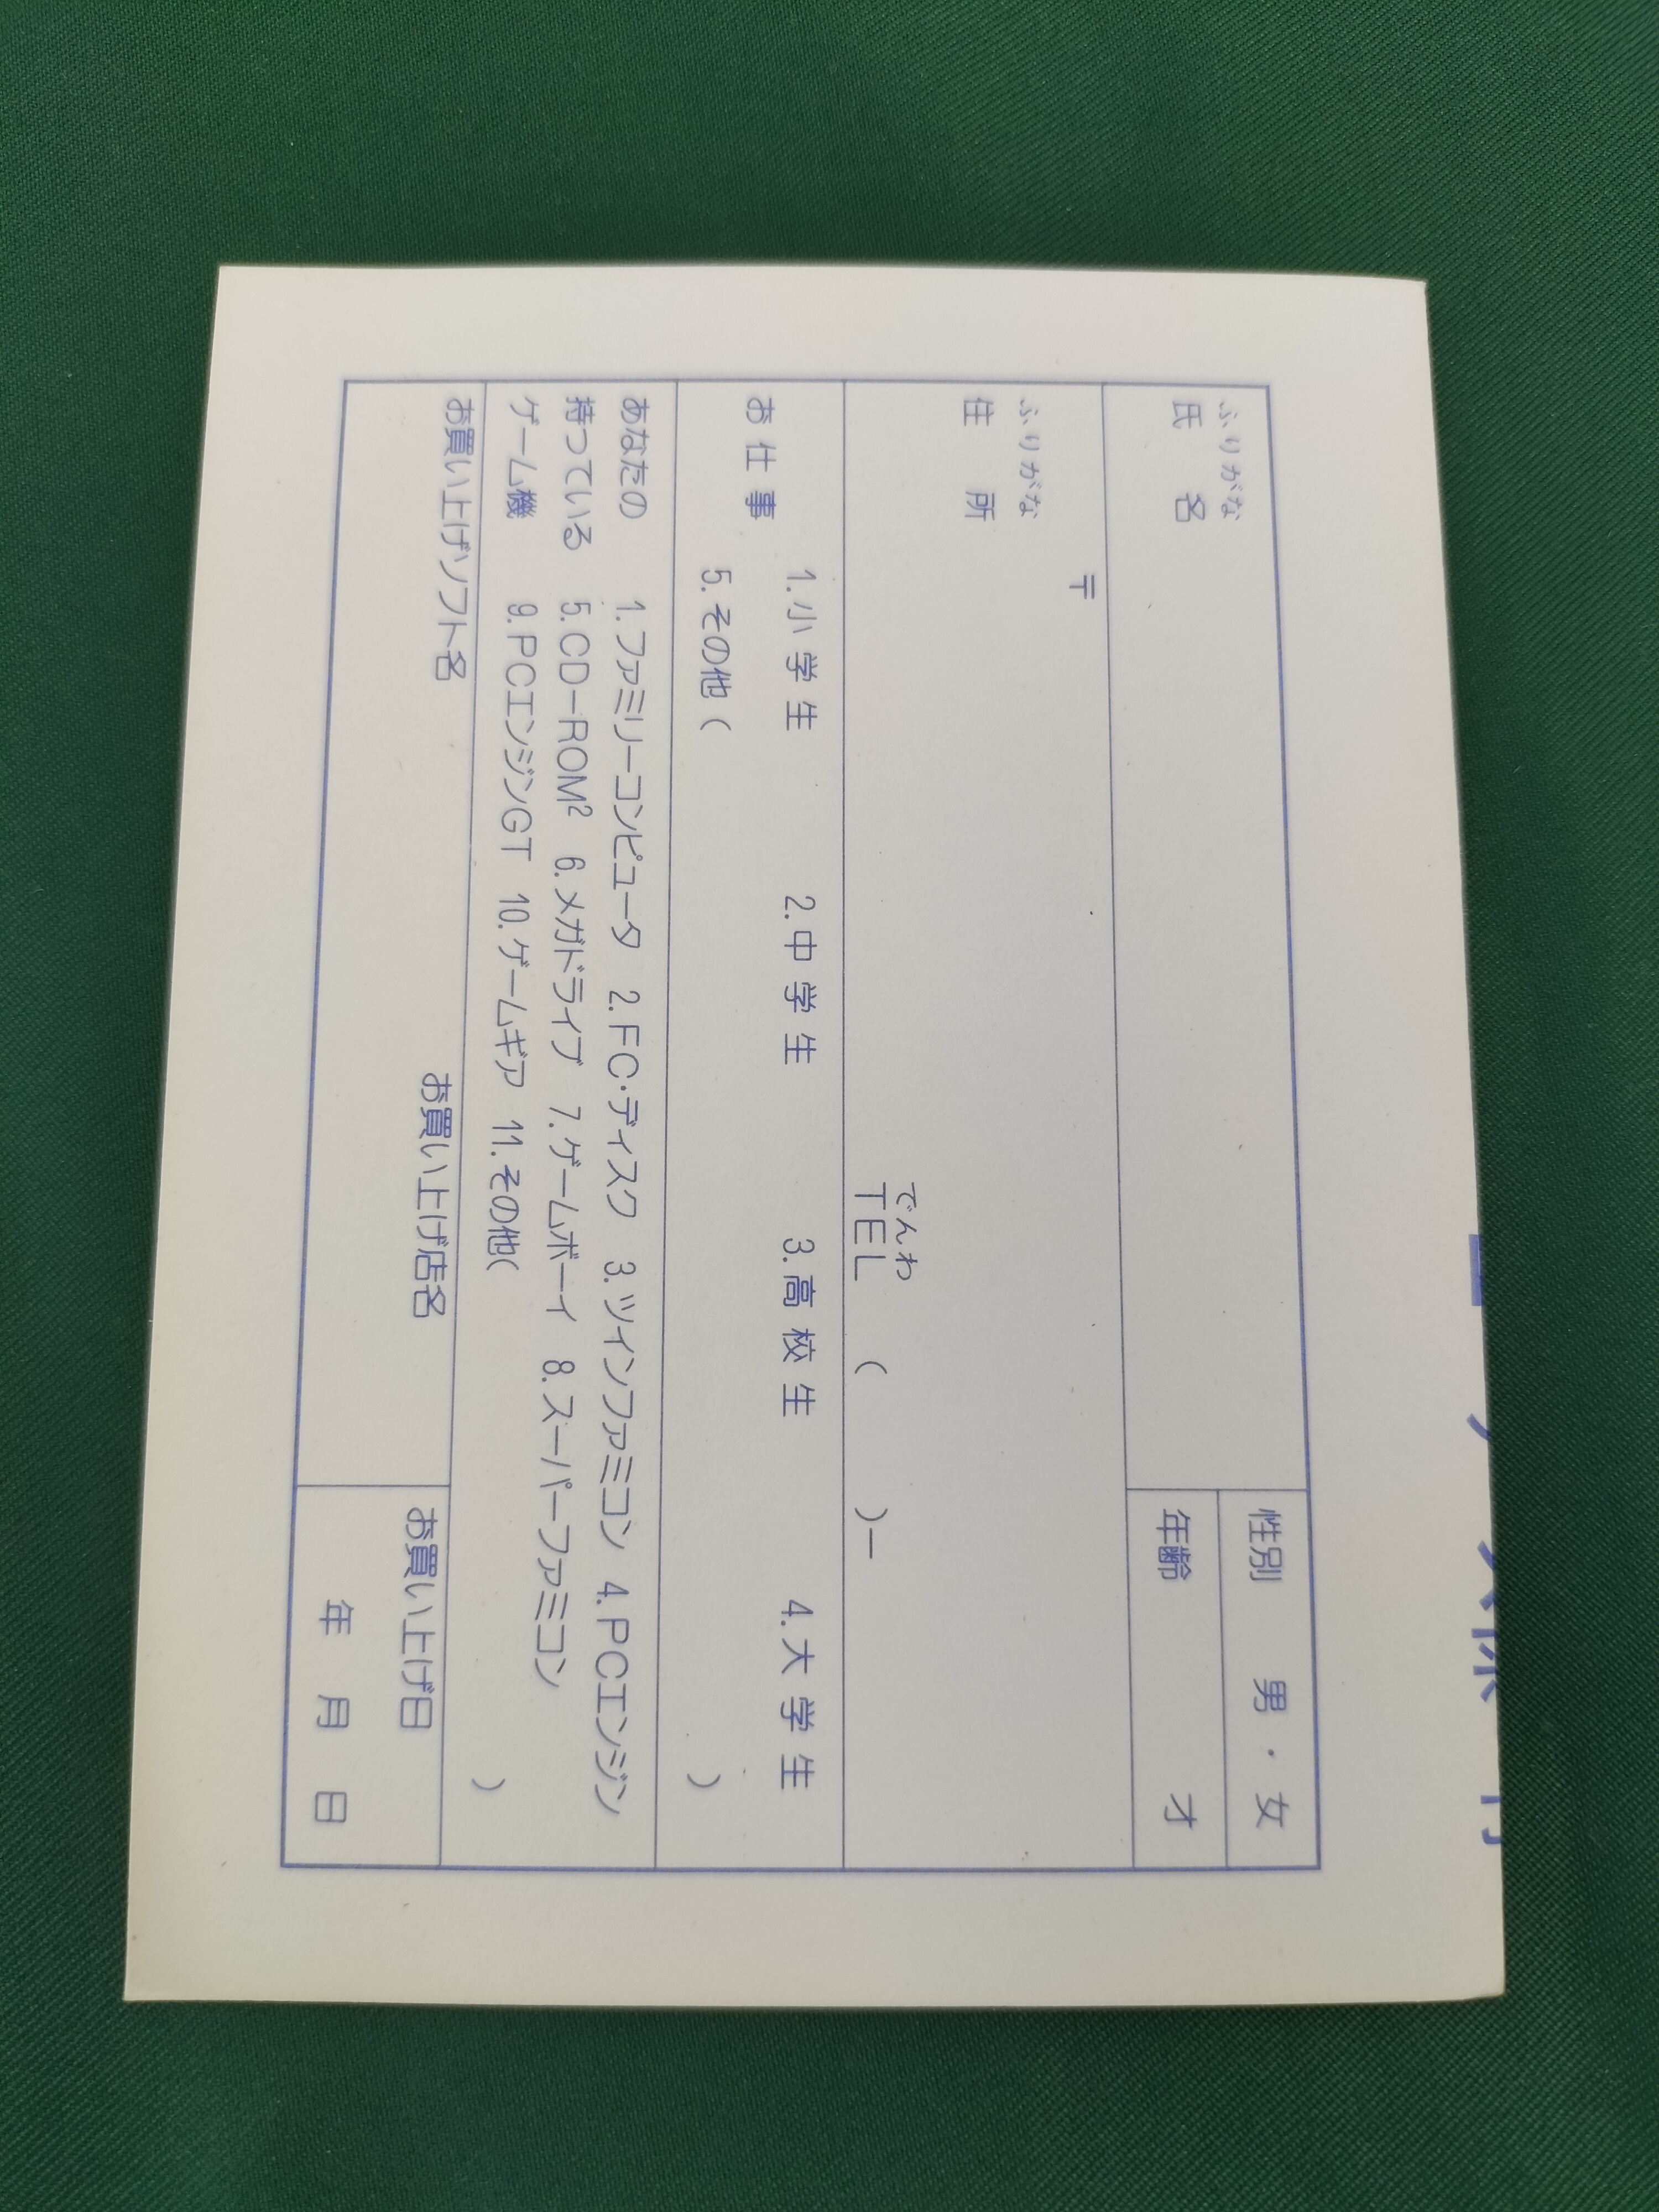 ふりがな
氏名
性別 男・女
年齢 才
〒
ふりがな
住所
でんわ
TEL ( )-
お仕事
1.小学生 2.中学生 3.高校生 4.大学生
5.その他( )
あなたの 1.ファミリーコンピュータ 2.FC・ディスク 3.ツインファミコン 4.PCエンジン
持っている 5.CD-ROM² 6.メガドライブ 7.ゲームボーイ 8.スーパーファミコン
ゲーム機 9.PCエンジンGT 10.ゲームギア 11.その他( )
お買い上げソフト名 お買い上げ店名 お買い上げ日
年 月 日